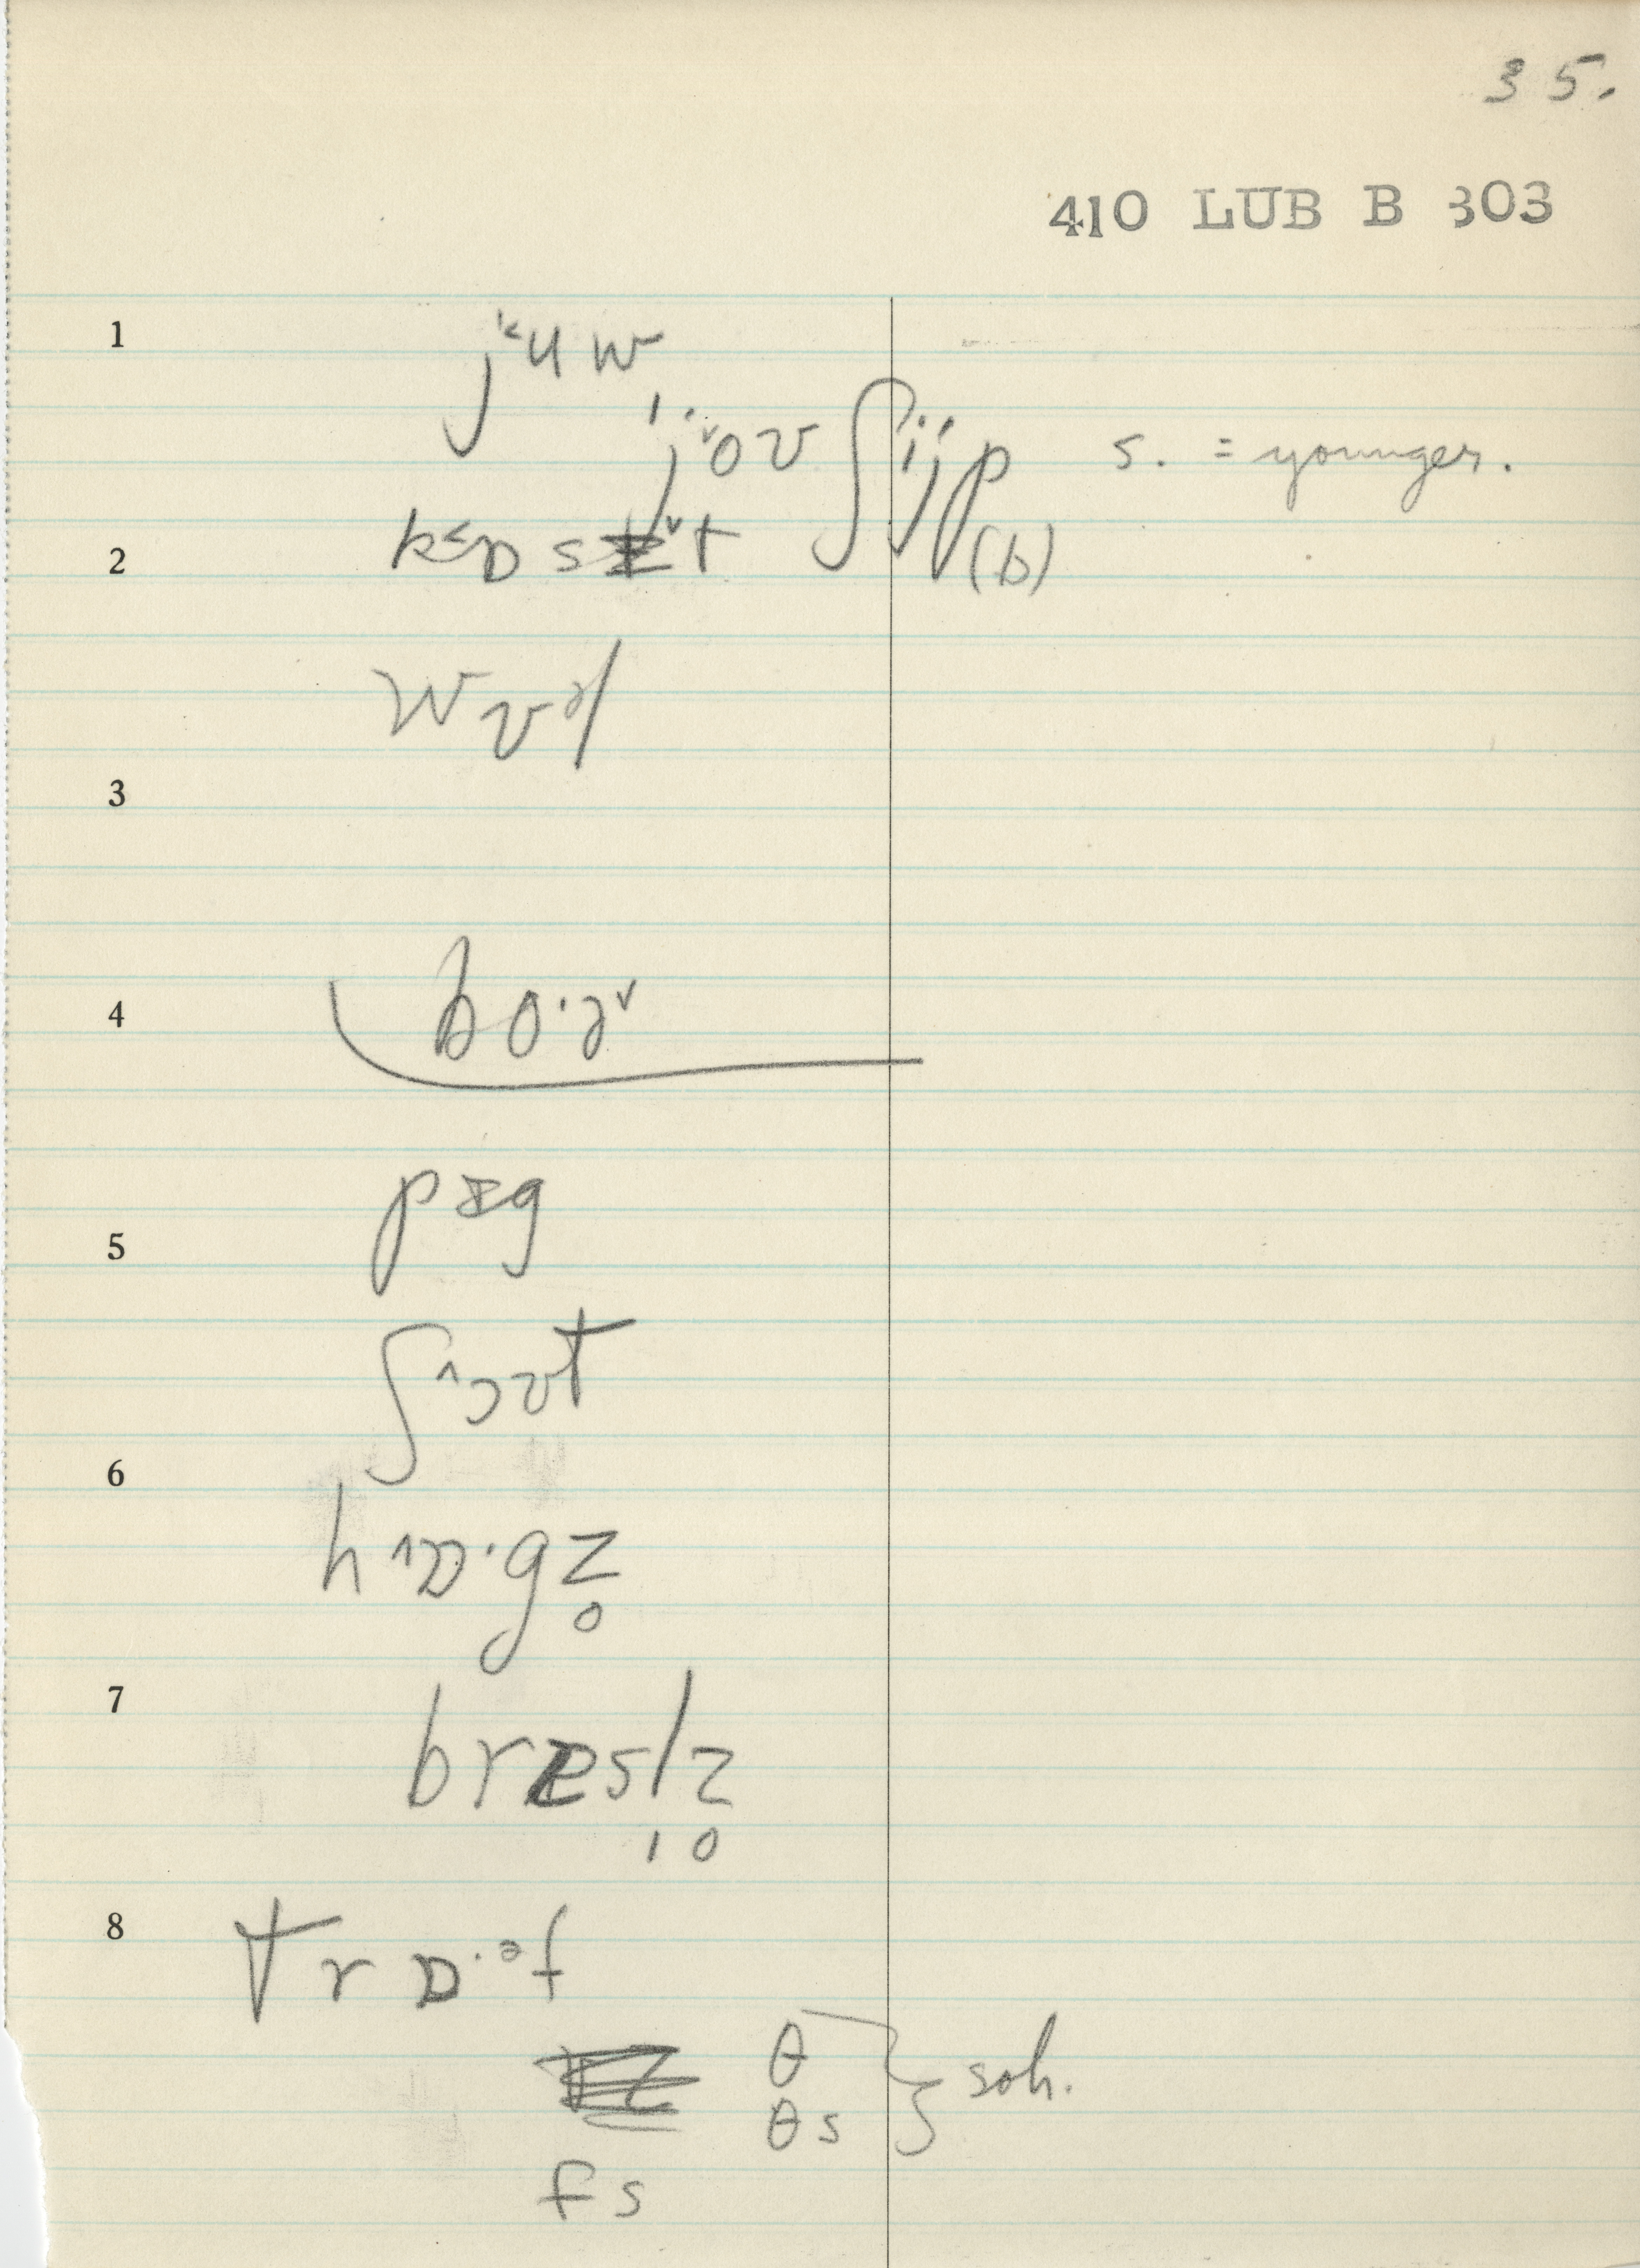 35.
410 LUB B 303
1
j˂u w
jˇoʊ ʃijp s. = younger.
2
k˂ɒ s t (b)
wʊəl
3
4
bo·əˇ
pɪg
5
ʃ˄ɔʊt
6
h˄ɒ·gz̥
7
bresl̩z̥
8
trɒ·əf
θ
θs } soh.
fs